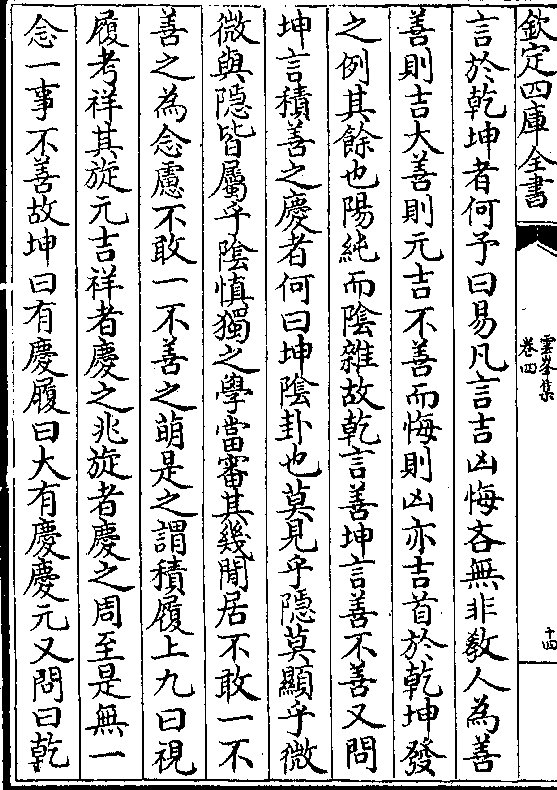 欽定四庫全書
雲峯集
卷四
十四
言於乾坤者何予曰易凡言吉凶悔吝無非教人為善
善則吉大善則元吉不善而悔則凶亦吉首於乾坤發
之例其餘也陽純而陰雜故乾言善坤言善不善又問
坤言積善之慶者何曰坤陰卦也莫見乎隱莫顯乎微
微與隱皆屬乎陰慎獨之學當審其幾閒居不敢一不
善之為念慮不敢一不善之萌是之謂積履上九曰視
履考祥其旋元吉祥者慶之兆旋者慶之周至是無一
念一事不善故坤曰有慶履曰大有慶慶元又問曰乾